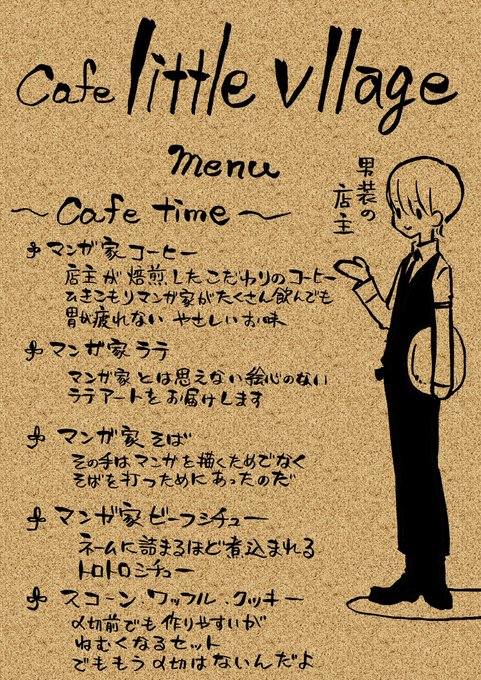 Cafe little vllage
menu
男装の
店主
〜 Cafe time 〜
マンガ家コーヒー
店主が焙煎したこだわりのコーヒー
ひきこもりマンガ家がたくさん飲んでも
胃が疲れない やさしいお味
マンガ家ラテ
マンガ家とは思えない絵心のない
ラテアートをお届けします
マンガ家そば
その手はマンガを描くためでなく
そばを打つためにあったのだ
マンガ家ビーフシチュー
ネームに詰まるほど煮込まれる
トロトロシチュー
スコーン.ワッフル.クッキー
〆切前でも作りやすいが
ねむくなるセット
でももう〆切はないんだよ